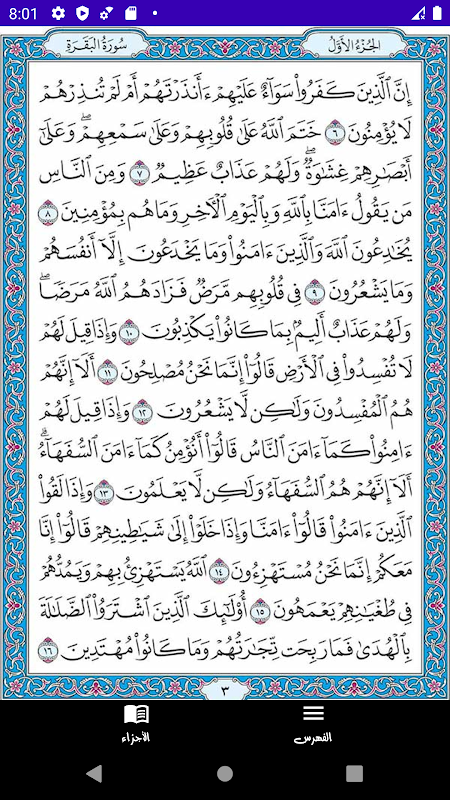 8:01
سُورَةُ البَقَرَةِ الجُزْءُ الأَوَّلُ
إِنَّ ٱلَّذِينَ كَفَرُوا۟ سَوَآءٌ عَلَيْهِمْ ءَأَنذَرْتَهُمْ أَمْ لَمْ تُنذِرْهُمْ
لَا يُؤْمِنُونَ ٦ خَتَمَ ٱللَّهُ عَلَىٰ قُلُوبِهِمْ وَعَلَىٰ سَمْعِهِمْ ۖ وَعَلَىٰٓ
أَبْصَٰرِهِمْ غِشَٰوَةٌ ۖ وَلَهُمْ عَذَابٌ عَظِيمٌ ٧ وَمِنَ ٱلنَّاسِ
مَن يَقُولُ ءَامَنَّا بِٱللَّهِ وَبِٱلْيَوْمِ ٱلْءَاخِرِ وَمَا هُم بِمُؤْمِنِينَ ٨
يُخَٰدِعُونَ ٱللَّهَ وَٱلَّذِينَ ءَامَنُوا۟ وَمَا يَخْدَعُونَ إِلَّآ أَنفُسَهُمْ
وَمَا يَشْعُرُونَ ٩ فِى قُلُوبِهِم مَّرَضٌ فَزَادَهُمُ ٱللَّهُ مَرَضًا ۖ
وَلَهُمْ عَذَابٌ أَلِيمٌۢ بِمَا كَانُوا۟ يَكْذِبُونَ ١٠ وَإِذَا قِيلَ لَهُمْ
لَا تُفْسِدُوا۟ فِى ٱلْأَرْضِ قَالُوٓا۟ إِنَّمَا نَحْنُ مُصْلِحُونَ ١١ أَلَآ إِنَّهُمْ
هُمُ ٱلْمُفْسِدُونَ وَلَٰكِن لَّا يَشْعُرُونَ ١٢ وَإِذَا قِيلَ لَهُمْ
ءَامِنُوا۟ كَمَآ ءَامَنَ ٱلنَّاسُ قَالُوٓا۟ أَنُؤْمِنُ كَمَآ ءَامَنَ ٱلسُّفَهَآءُ ۗ
أَلَآ إِنَّهُمْ هُمُ ٱلسُّفَهَآءُ وَلَٰكِن لَّا يَعْلَمُونَ ١٣ وَإِذَا لَقُوا۟
ٱلَّذِينَ ءَامَنُوا۟ قَالُوٓا۟ ءَامَنَّا وَإِذَا خَلَوْا۟ إِلَىٰ شَيَٰطِينِهِمْ قَالُوٓا۟ إِنَّا
مَعَكُمْ إِنَّمَا نَحْنُ مُسْتَهْزِءُونَ ١٤ ٱللَّهُ يَسْتَهْزِئُ بِهِمْ وَيَمُدُّهُمْ
فِى طُغْيَٰنِهِمْ يَعْمَهُونَ ١٥ أُو۟لَٰٓئِكَ ٱلَّذِينَ ٱشْتَرَوُا۟ ٱلضَّلَٰلَةَ
بِٱلْهُدَىٰ فَمَا رَبِحَت تِّجَٰرَتُهُمْ وَمَا كَانُوا۟ مُهْتَدِينَ ١٦
٣
الفهرس الأجزاء